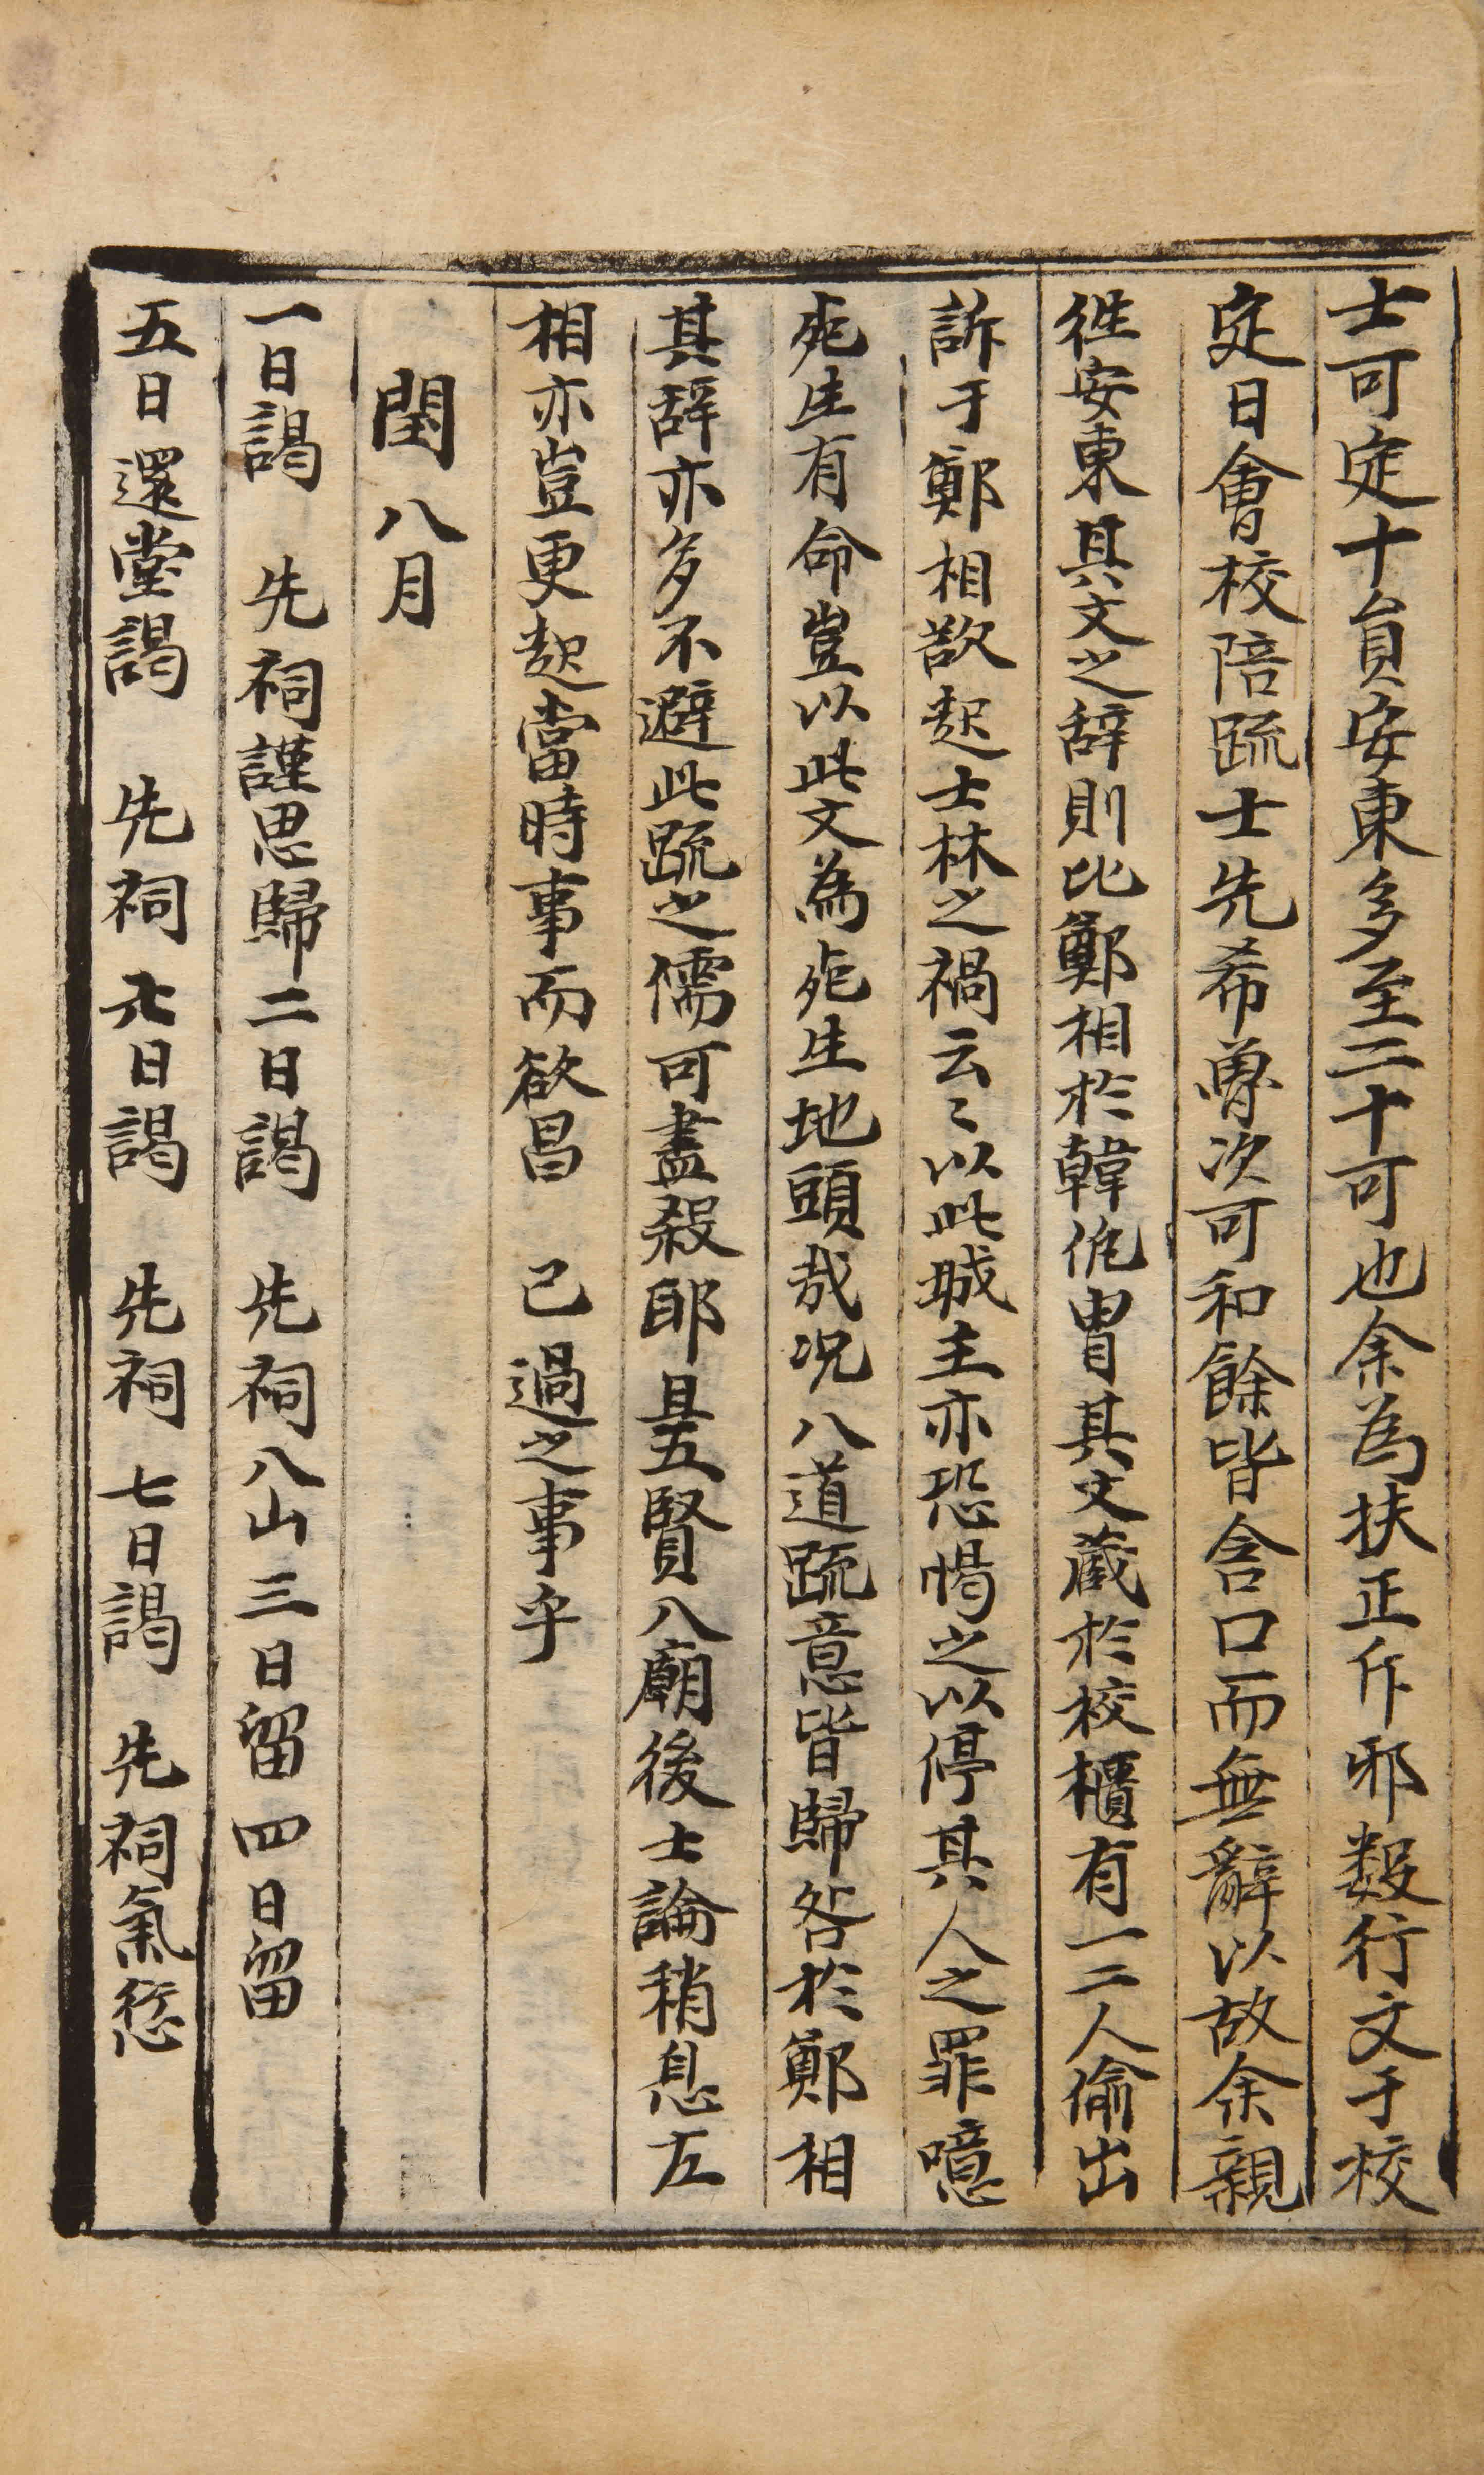 士可定十員安東多至二十可也余為扶正斥邪数行文于校
定日會校陪疏士先希魯次可和餘皆含口而無辭以故余親
徃安東其文之辞則比鄭相於韓侂冑其文藏於校櫃有一二人偷出
訴于鄭相欲起士林之禍云〻以此城主亦恐愒之以停其人之罪噫
死生有命豈以此文為死生地頭哉况八道疏意皆歸咎於鄭相
其辞亦多不避此疏之儒可盡殺耶且五賢入廟後士論稍息左
相亦豈更起當時事而欲昌 已過之事乎
閏八月
一日謁 先祠謹思歸二日謁 先祠入山三日留四日留
五日還堂謁 先祠六日謁 先祠七日謁 先祠氣愆